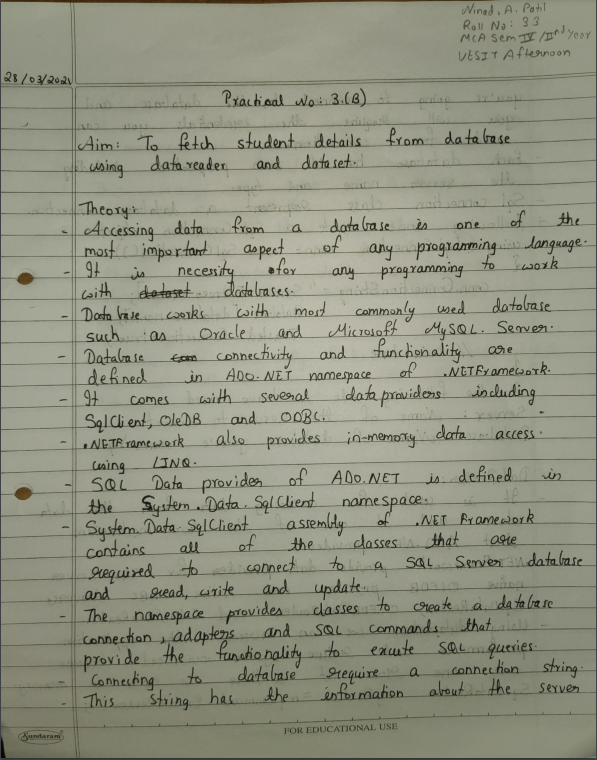 Ninad. A. Patil
Roll No: 33
MCA Sem IV / IInd Year
VESIT Afternoon
28/03/2021
Practical No: 3.(B)
Aim: To fetch student details from database
using datareader and dataset.
Theory:
- Accessing data from a database is one of the
most important aspect of any programming language.
- It is necesity for any programming to work
with dataset databases.
- Database works with most commonly used database
such as Oracle and Microsoft MySQL Server.
- Database connectivity and functionality are
defined in ADO.NET namespace of .NETFramework.
- It comes with several dataproviders including
SqlClient, OleDB and ODBC.
- .NETFramework also provides in-memory data access
using LINQ.
- SQL Data provider of ADO.NET is defined in
the System.Data.SqlClient namespace.
- System.Data.SqlClient assembly of .NET Framework
contains all of the classes that are
required to connect to a SQL Server database
and read, write and update.
- The namespace provides classes to create a database
connection, adapters and SQL commands that
provide the functionality to excute SQL queries.
- Connecting to database require a connection string.
- This string has the information about the server
Sundaram
FOR EDUCATIONAL USE